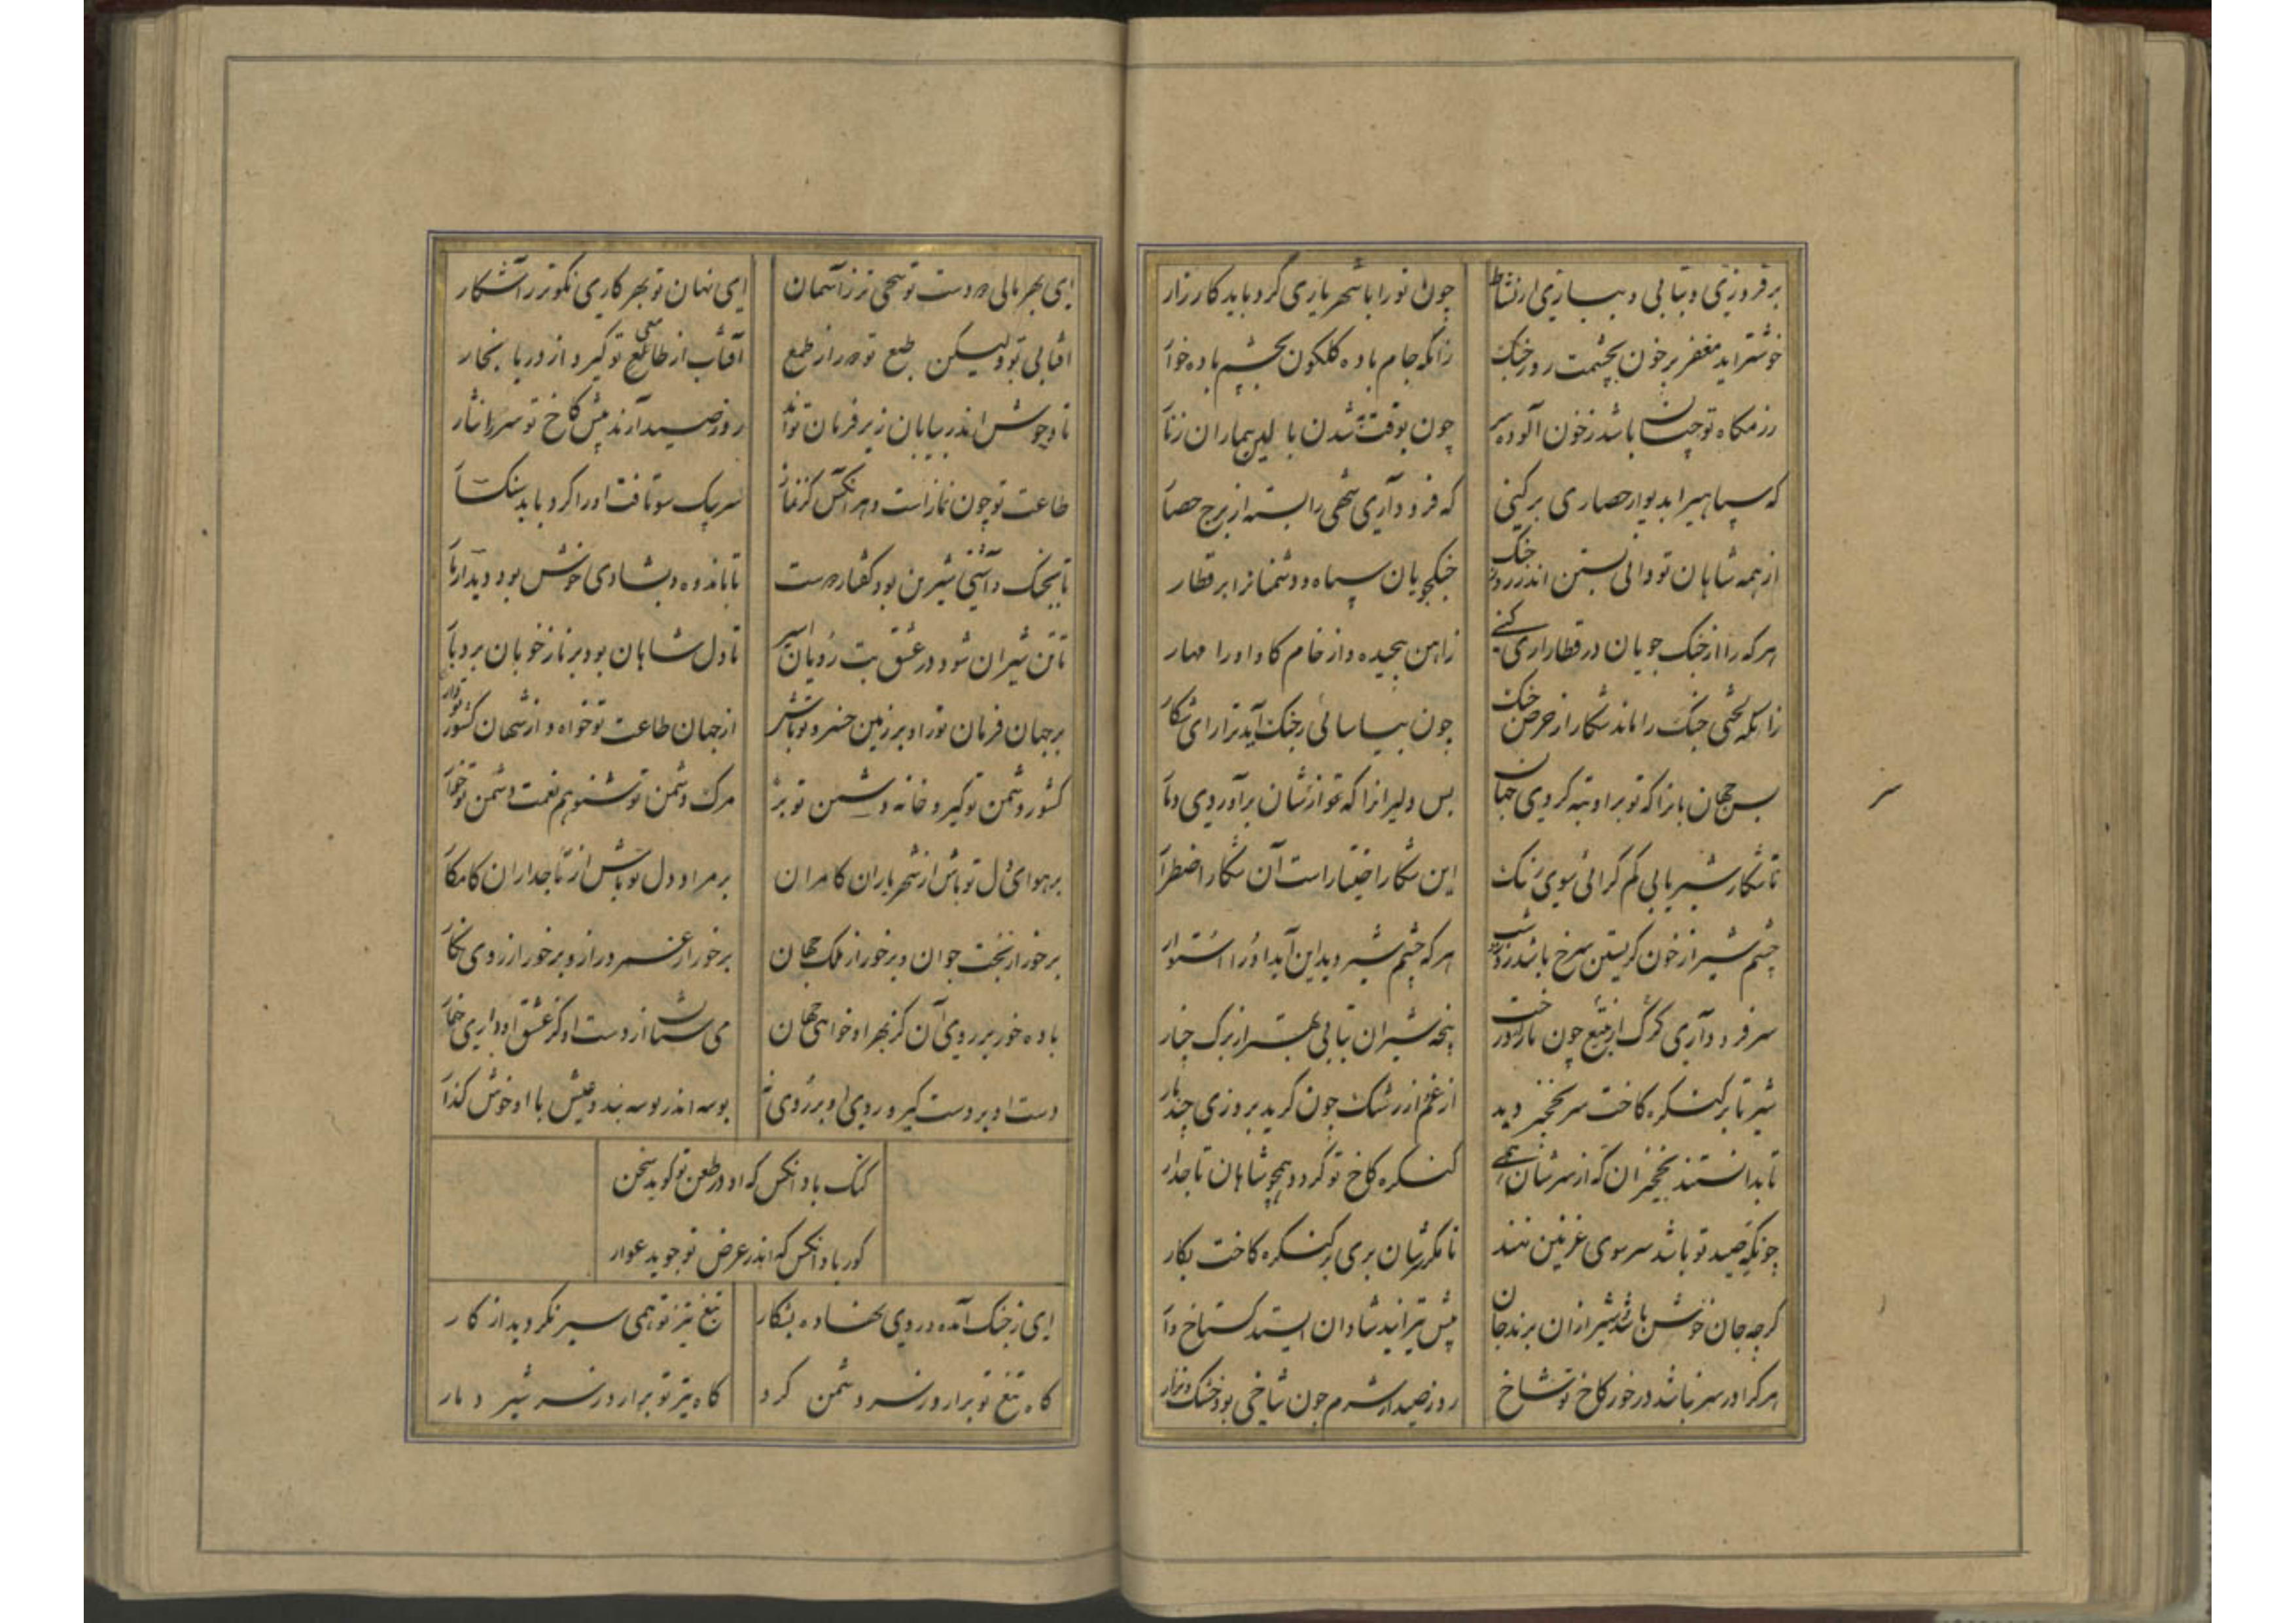 برفروزی و بتابی و بسازی از نشاط
چون تو را با شهریاری کرد باید کارزار
خوشتر آید مغفر پرخون بچشمت روز جنک
زانکه جام باده کلکون بچشم باده خوار
رزمکاه تو چنان باشد ز خون آلوده سر
چون بوقت شدن بالین بیماران
که سپاهیرا بدیوار حصاری برکنی
که فرود آری شهی را بسته از برج حصار
از همه شاهان تو دانی بستن اندر روز جنک
جنکجویان سپاه و دشمنانرا بر قطار
هر که را از جنک جویان در قطار اری کنی
زاهن پیچیده و از خام کاو او را مهار
زانکه لختی جنک را ماند شکار از حرص جنک
چون بیاسائی ز جنک آید ترا رای شکار
بس جهان بانرا که تو بر او تبه کردی جهان
بس دلیرانرا که تو ازشان برآوردی دمار
تا شکار شیر یابی کم کرائی سوی رنک
این شکار اختیار است آن شکار اضطرار
چشم شیر از خون کریستن سرخ باشد روز و شب
هر که چشم شیر دید این آید او را استوار
سر فرود آری کرک از تیغ چون بار درخت
پنجه شیران بتابی از برک چنار
شیر تا بر کنکره کاخت سر نخجیر دید
از غم از رشک چون کرید بروزی چند بار
تا بدانستند نخجیران که از سرشان همی
کنکره کاخ تو کردد همچو شاهان تاجدار
چونکه صید تو باشد سر سوی غزنین نهند
تا مکر شان بری بر کنکره کاخت بکار
کرچه جان خوش باشد شیر از ان برند جان
پیش تیر ایند شادان ایستند کستاخ وار
هر کرا در سر نباشد در خور کاخ تو شاخ
روز صید از شرم چون شاخی بود خشک و نزار
ای بهر بالی دو دست تو سخی تر ز آسمان
ای نهان تو بهر کاری نکوتر ز آشکار
افتابی تو ولیکن طبع تو دور از طمع
آفتاب از طامعی تو کیرد از دریا بخار
تا وحوش اندر بیابان زیر فرمان تواند
روز صید آرند پیش کاخ تو سرها نثار
طاعت تو چون نماز است و هر انکس کز نماز
سر بیک سو تافت او را کرد باید سنکسار
تا بجنک و آشتی شیرین بود کفتار دوست
تا باندوه و بشادی خوش بود دیدار یار
تا تن شیران شود در عشق بت رویان اسیر
تا دل شاهان بود بر ناز خوبان بردبار
بر جهان فرمان تو را و بر زمین خسرو تو باش
از جهان طاعت تو خواه و از شهان کشور تو دار
کشور دشمن تو کیر و خانه دشمن تو بر
مرک دشمن تو شنو هم نعمت دشمن تو خوار
بر هوای دل تو باش از شهریاران کامران
بر مراد دل تو باش از تاجداران کامکار
برخور از بخت جوان و برخور از ملک جهان
برخور از عمر دراز و برخور از روی نکار
باده خور بر روی آن کز بهر او خواهی جهان
می ستان از دست او کز عشق او داری خمار
دست او بر دست کیر و روی او بر روی نه
بوسه اندر بوسه بند و عیش با او خوش کذار
کنک باد انکس که او در طعن تو کوید سخن
کور باد انکس که اندر عرض تو جوید عوار
ای ز جنک آمده و روی نهاده بشکار
تیغ و تیز تو همی سیر نکردید از کار
کاه تیغ تو برارد ز سر دشمن کرد
کاه تیر تو برارد ز سر شیر دمار
سر